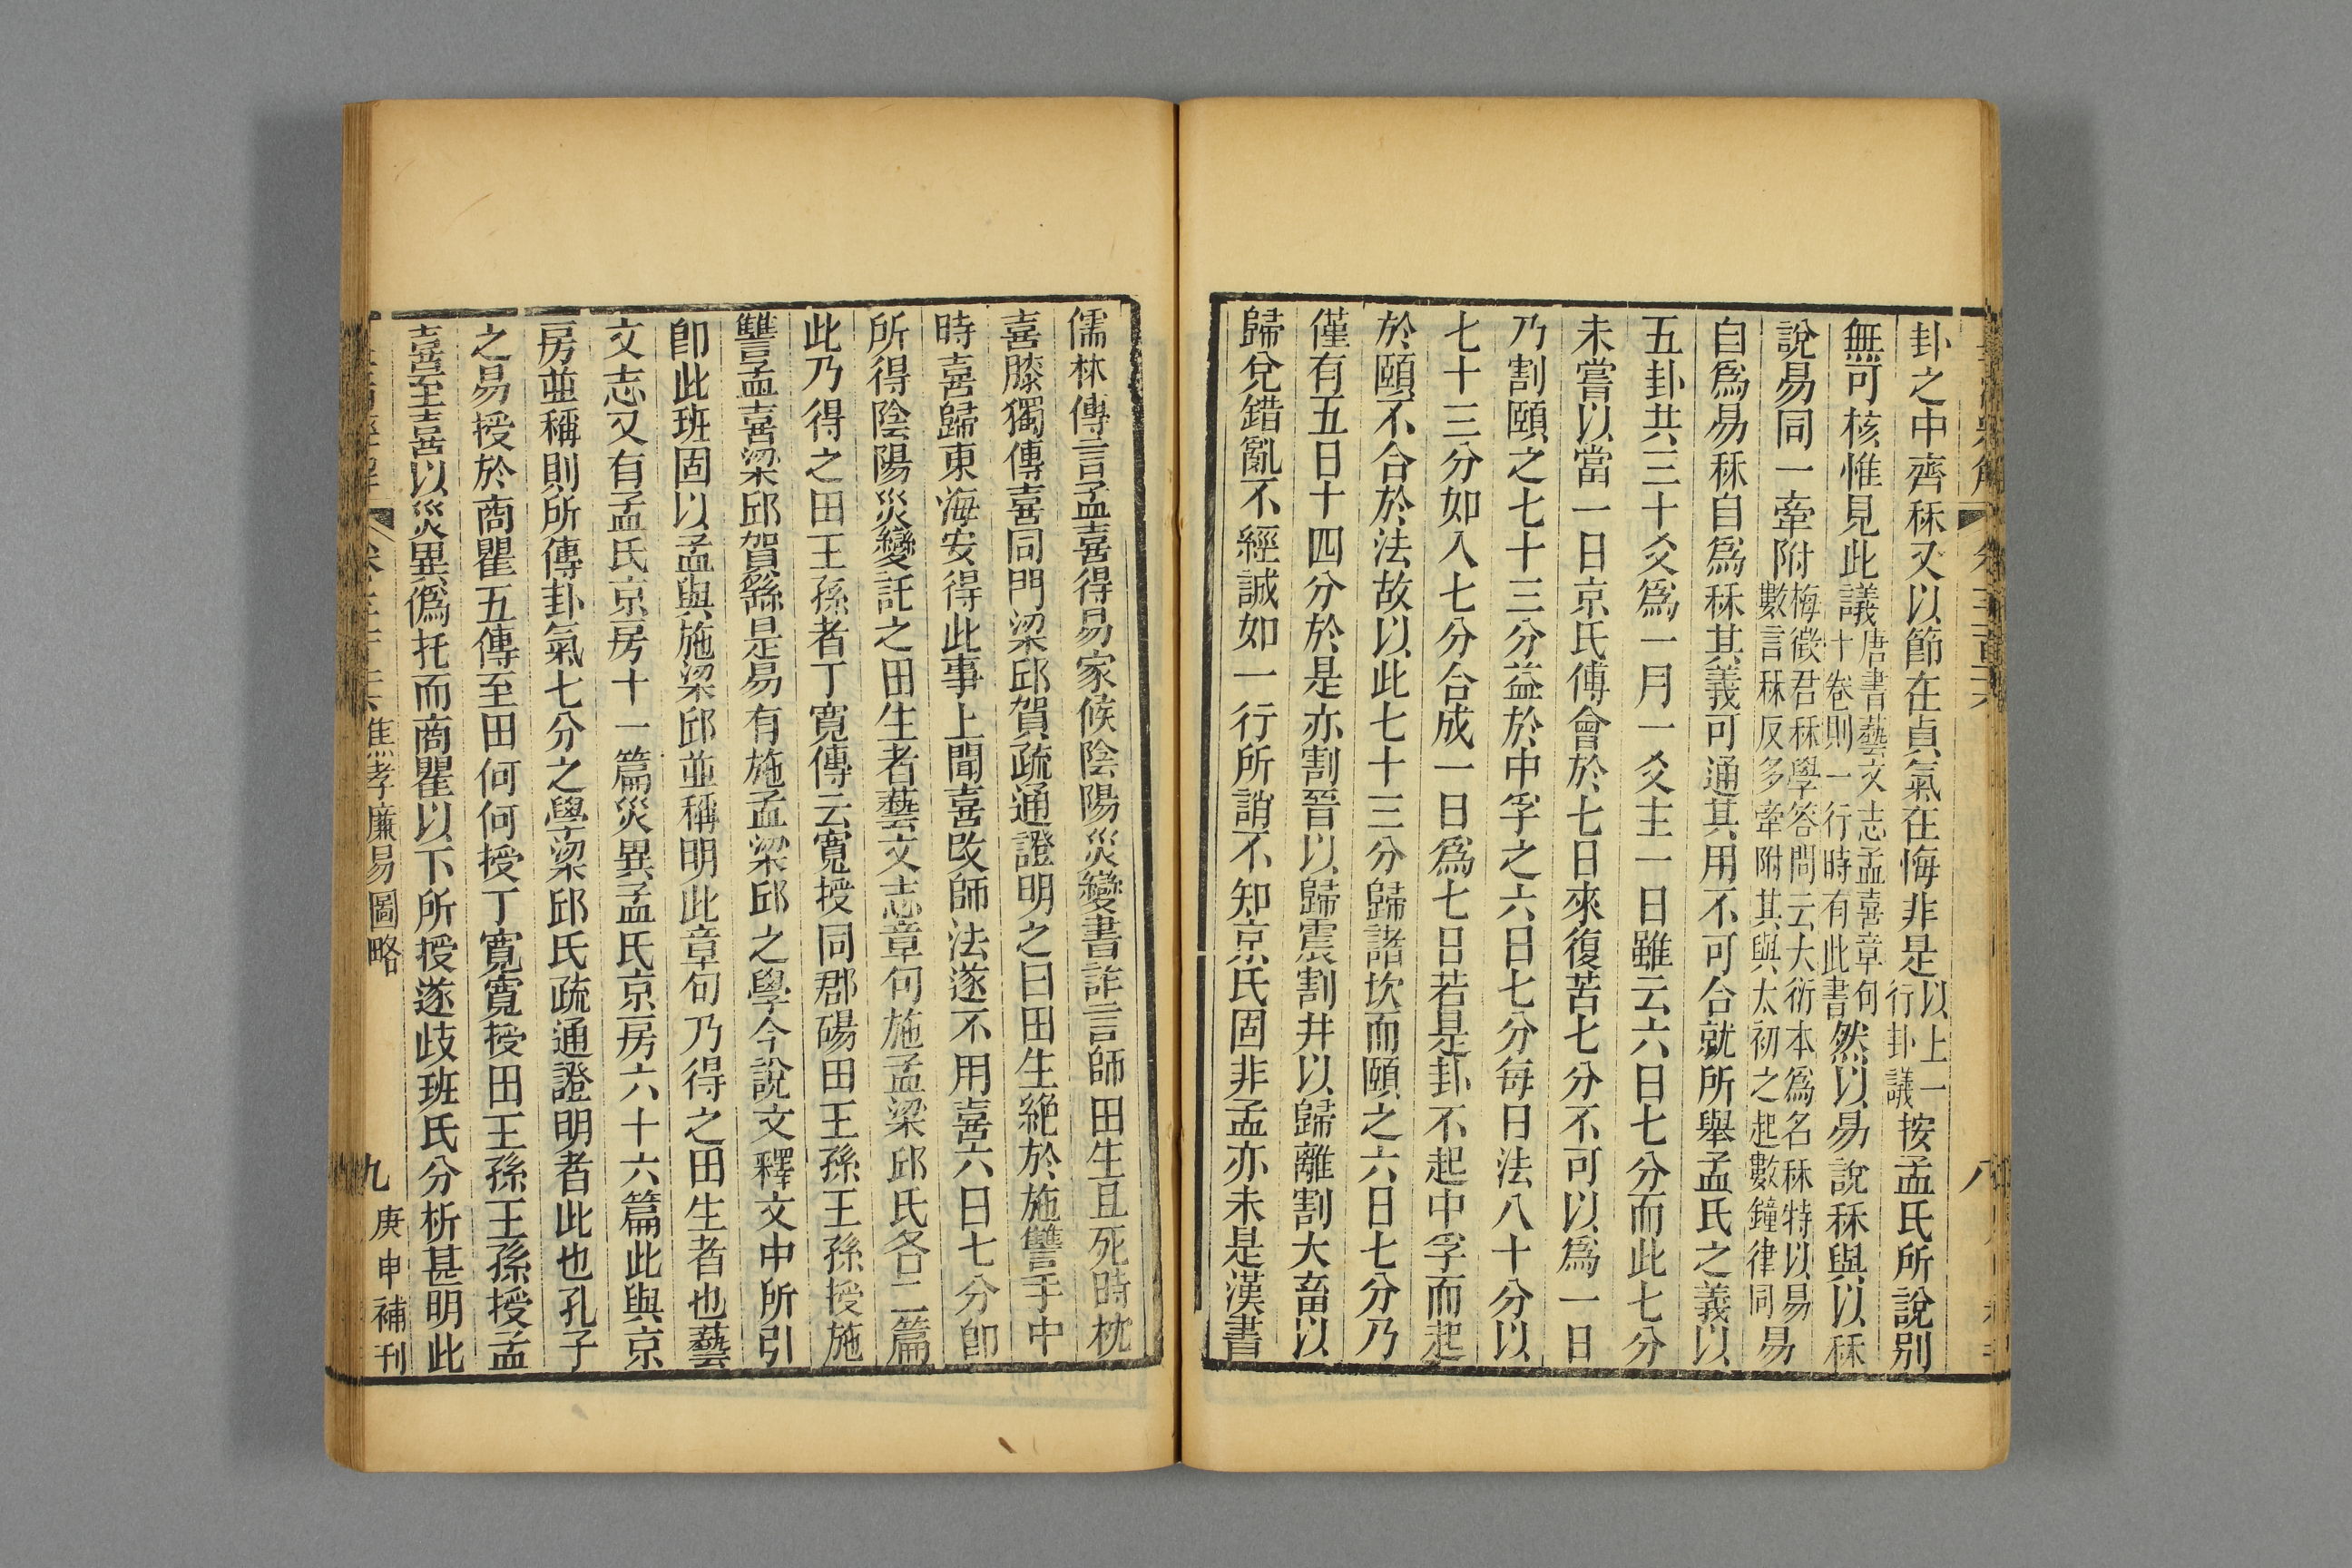 卦之中齊秝又以節在貞氣在悔非是以上一行卦議按孟氏所說别
無可核惟見此議唐書藝文志孟喜章句十卷則一行時有此書然以易說秝與以秝
說易同一牽附梅徵君秝學答問云大衍本爲名秝特以易數言秝反多牽附其與太初之起數鐘律同易
自爲易秝自爲秝其義可通其用不可合就所舉孟氏之義以
五卦共三十爻爲一月一爻主一日雖云六日七分而此七分
未嘗以當一日京氏傅會於七日來復苦七分不可以爲一日
乃割頤之七十三分益於中孚之六日七分每日法八十分以
七十三分如入七分合成一日爲七日若是卦不起中孚而起
於頤不合於法故以此七十三分歸諸坎而頤之六日七分乃
僅有五日十四分於是亦割晉以歸震割井以歸離割大畜以
歸兌錯亂不經誠如一行所誚不知京氏固非孟亦未是漢書
八
儒林傳言孟喜得易家候陰陽災變書詐言師田生且死時枕
喜膝獨傳喜同門梁邱賀疏通證明之曰田生絶於施讐手中
時喜歸東海安得此事上聞喜改師法遂不用喜六日七分卽
所得陰陽災變託之田生者藝文志章句施孟梁邱氏各二篇
此乃得之田王孫者丁寬傳云寬授同郡碭田王孫王孫授施
讐孟喜梁邱賀繇是易有施孟梁邱之學今說文釋文中所引
卽此班固以孟與施梁邱並稱明此章句乃得之田生者也藝
文志又有孟氏京房十一篇災異孟氏京房六十六篇此與京
房並稱則所傳卦氣七分之學梁邱氏疏通證明者此也孔子
之易授於商瞿五傳至田何何授丁寬寬授田王孫王孫授孟
喜至喜以災異僞托而商瞿以下所授遂歧班氏分析甚明此
焦孝廉易圖略
九
庚申補刊